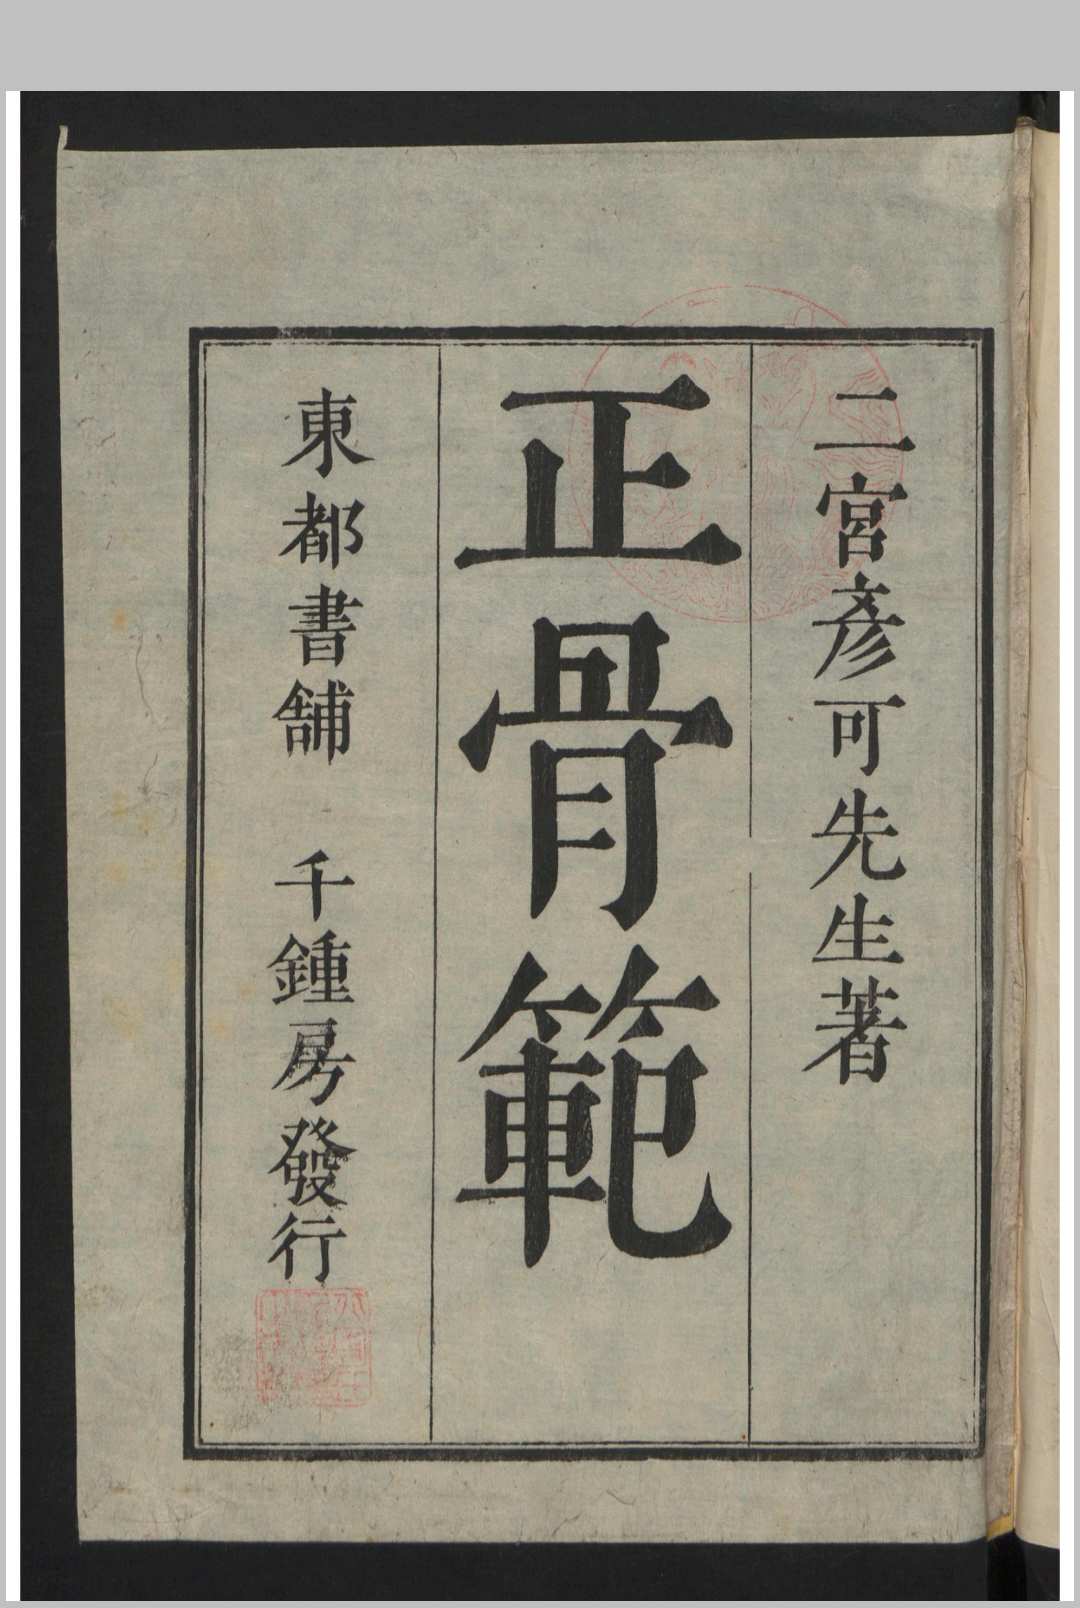 二宮彥可先生著
正骨範
東都書舖　千鍾房發行